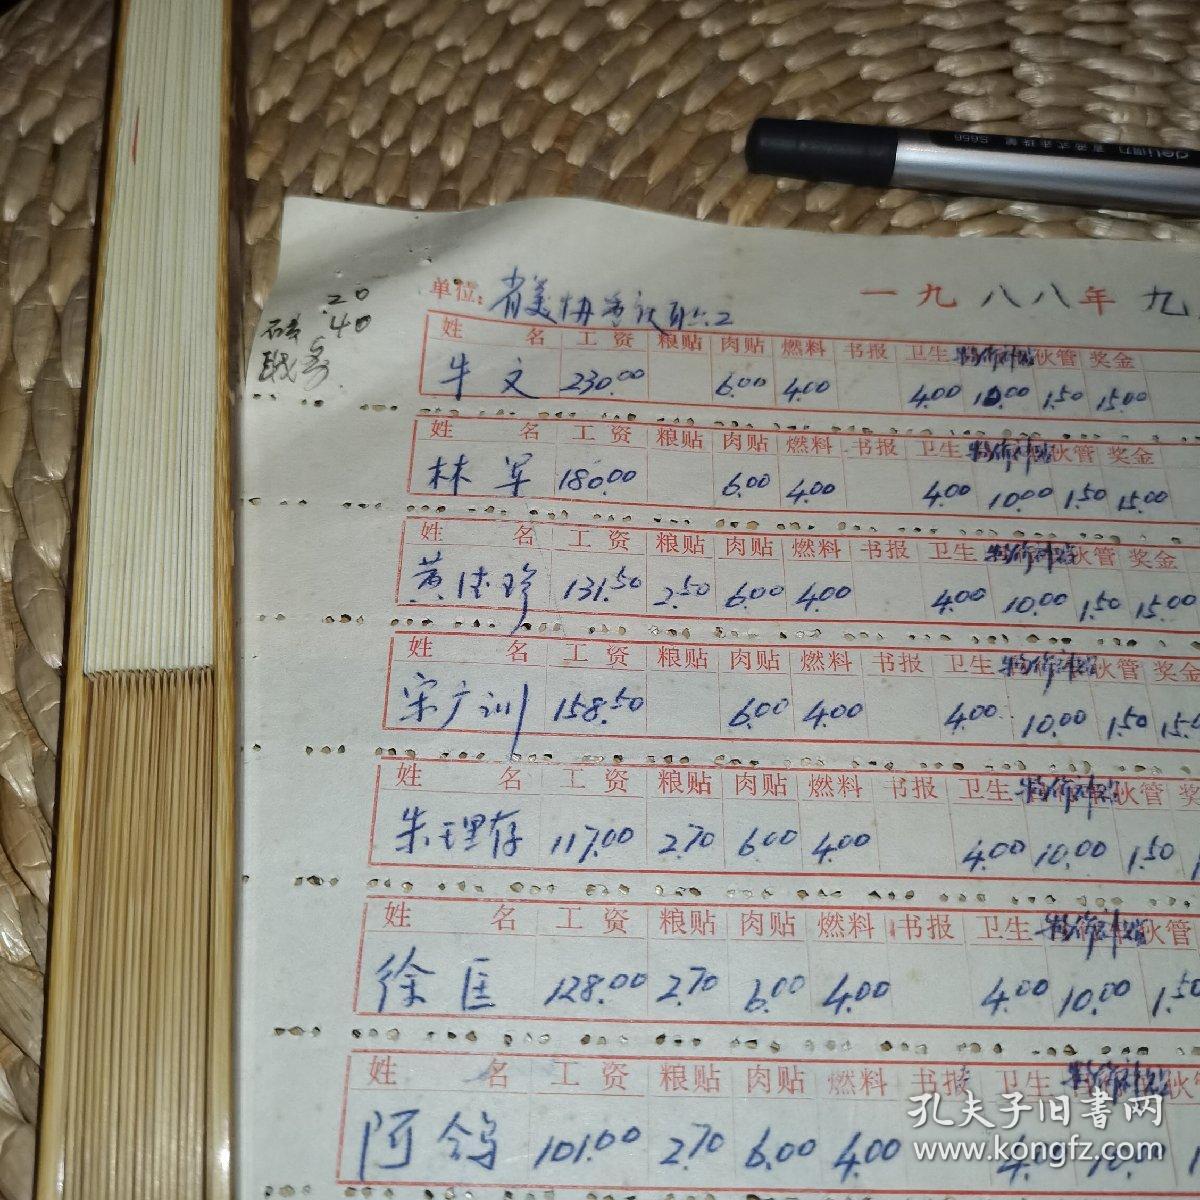 deli得力 直液式走珠笔 S656
.20
.40
单位: 省美协
一九八八年九
姓名 工资 粮贴 肉贴 燃料 书报 卫生 物价补贴 伙管 奖金
牛文 230.00 6.00 4.00 4.00 10.00 1.50 15.00
姓名 工资 粮贴 肉贴 燃料 书报 卫生 物价补贴 伙管 奖金
林军 180.00 6.00 4.00 4.00 10.00 1.50 15.00
姓名 工资 粮贴 肉贴 燃料 书报 卫生 物价补贴 伙管 奖金
黄德珍 131.50 2.50 6.00 4.00 4.00 10.00 1.50 15.00
姓名 工资 粮贴 肉贴 燃料 书报 卫生 物价补贴 伙管 奖金
宋广训 158.50 6.00 4.00 4.00 10.00 1.50 15.0
姓名 工资 粮贴 肉贴 燃料 书报 卫生 物价补贴 伙管 奖
朱理存 117.00 2.70 6.00 4.00 4.00 10.00 1.50 1
姓名 工资 粮贴 肉贴 燃料 书报 卫生 物价补贴 伙管
徐匡 128.00 2.70 6.00 4.00 4.00 10.00 1.50
姓名 工资 粮贴 肉贴 燃料 书报 卫生 物价补贴 伙
阿鸽 101.00 2.70 6.00 4.00 4.00 10.00 1
孔夫子旧书网
www.kongfz.com